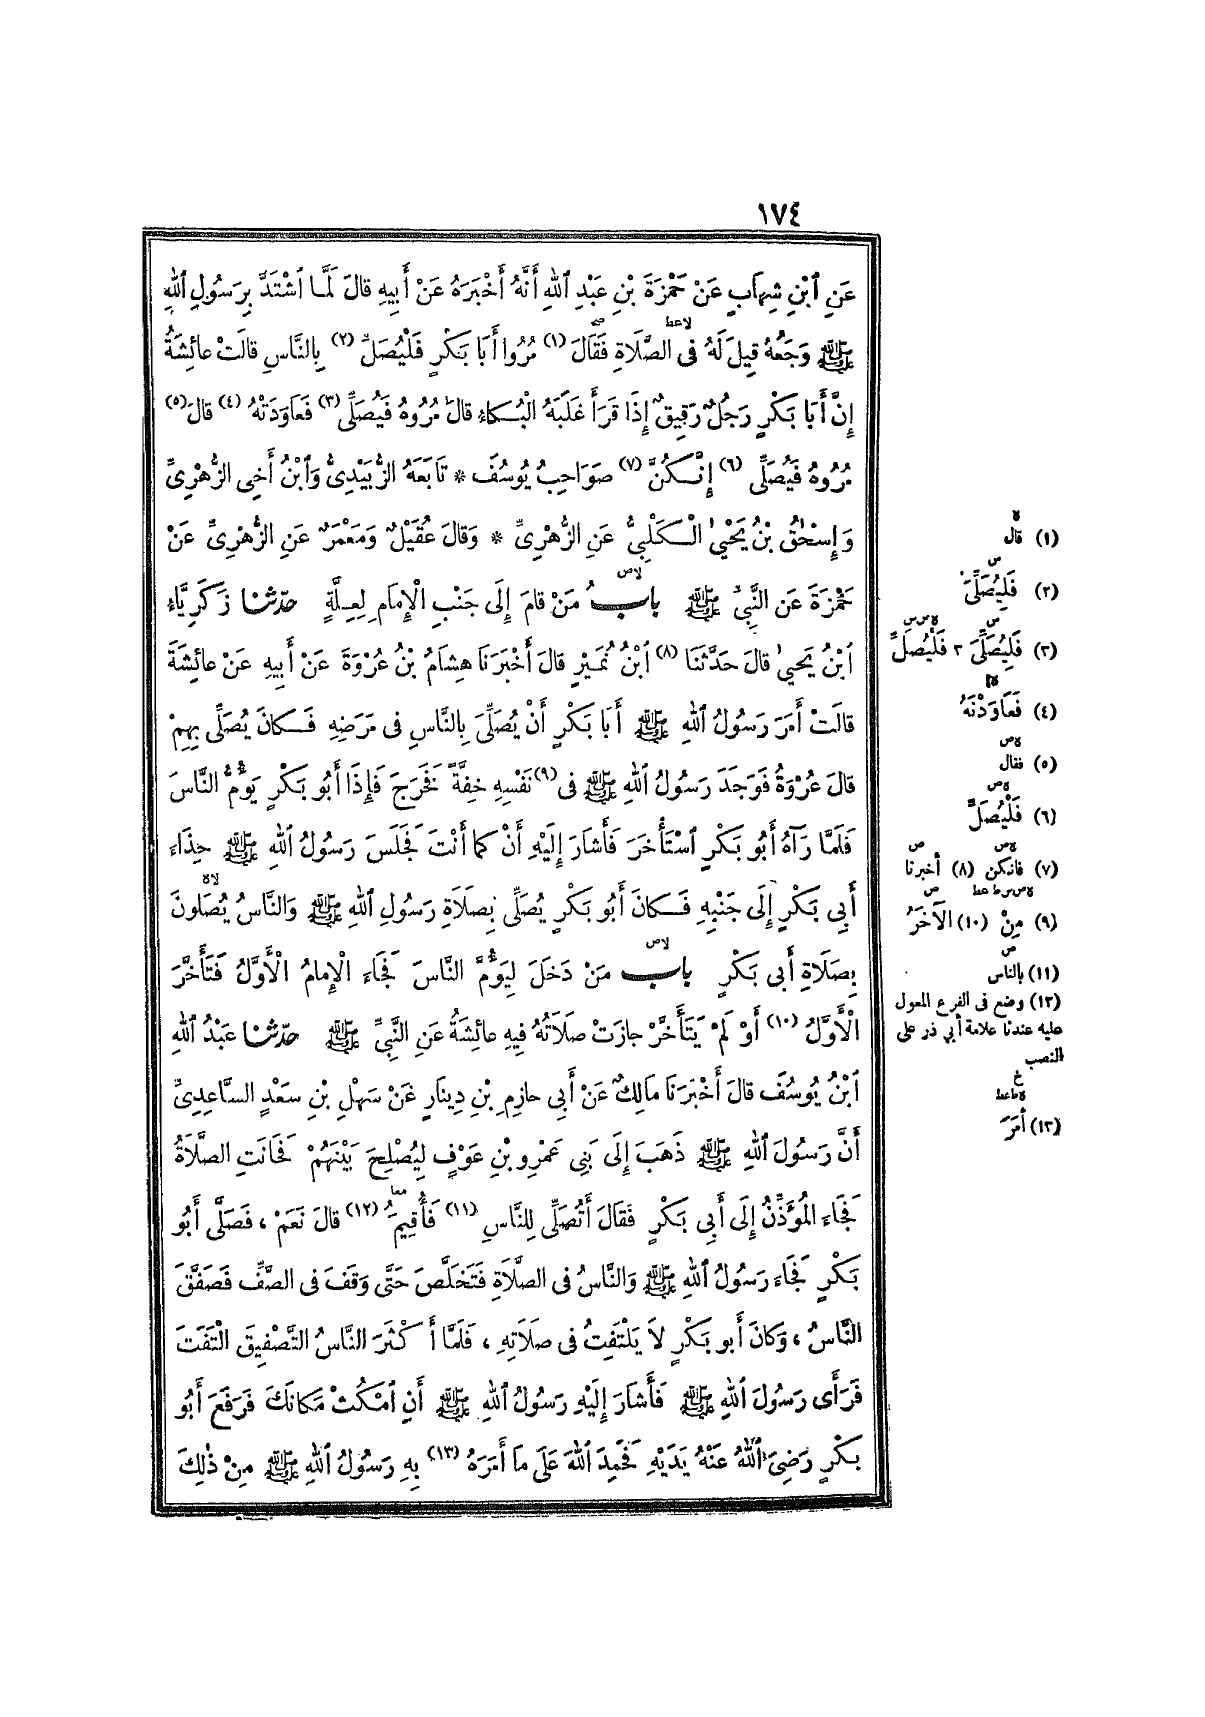 ١٧٤
عَنِ ٱبْنِ شِهَابٍ عَنْ حَمْزَةَ بْنِ عَبْدِ ٱللهِ أَنَّهُ أَخْبَرَهُ عَنْ أَبِيهِ قالَ لَمَّا ٱشْتَدَّ بِرَسُولِ ٱللهِ
ﷺ وَجَعُهُ قِيلَ لَهُ فى الصَّلَاةِ فَقَالَ (١) مُرُوا أَبَا بَكْرٍ فَلْيُصَلِّ (٢) بِالنَّاسِ قالَتْ عائِشَةُ
إِنَّ أَبَا بَكْرٍ رَجُلٌ رَقِيقٌ إِذَا قَرَأَ غَلَبَهُ الْبُكاءُ قالَ مُرُوهُ فَيُصَلِّى (٣) فَعَاوَدَتْهُ (٤) قالَ (٥)
مُرُوهُ فَيُصَلِّى (٦) إِنَّكُنَّ (٧) صَوَاحِبُ يُوسُفَ * تَابَعَهُ الزُّبَيْدِىُّ وَٱبْنُ أَخِى الزُّهْرِىِّ
وَإِسْحٰقُ بْنُ يَحْيىٰ الْكَلْبِىُّ عَنِ الزُّهْرِىِّ * وَقالَ عُقَيْلٌ وَمَعْمَرٌ عَنِ الزُّهْرِىِّ عَنْ
حَمْزَةَ عَنِ النَّبِىِّ ﷺ بابُ مَنْ قامَ إِلَى جَنْبِ الْإِمامِ لِعِلَّةٍ حدثنا زَكَرِيَّاءُ
ٱبْنُ يَحْيىٰ قالَ حَدَّثَنَا (٨) ٱبْنُ نُمَيْرٍ قالَ أَخْبَرَنَا هِشَامُ بْنُ عُرْوَةَ عَنْ أَبِيهِ عَنْ عائِشَةَ
قالَتْ أَمَرَ رَسُولُ ٱللهِ ﷺ أَبَا بَكْرٍ أَنْ يُصَلِّىَ بِالنَّاسِ فى مَرَضِهِ فَكانَ يُصَلِّى بِهِمْ
قالَ عُرْوَةُ فَوَجَدَ رَسُولُ ٱللهِ ﷺ فى (٩) نَفْسِهِ خِفَّةً فَخَرَجَ فَإِذَا أَبُو بَكْرٍ يَؤُمُّ النَّاسَ
فَلَمَّا رَآهُ أَبُو بَكْرٍ ٱسْتَأْخَرَ فَأَشَارَ إِلَيْهِ أَنْ كما أَنْتَ فَجَلَسَ رَسُولُ ٱللهِ ﷺ حِذَاءَ
أَبِى بَكْرٍ إِلَى جَنْبِهِ فَكانَ أَبُو بَكْرٍ يُصَلِّى بِصَلَاةِ رَسُولِ ٱللهِ ﷺ وَالنَّاسُ يُصَلُونَ
بِصَلَاةِ أَبِى بَكْرٍ باب مَنْ دَخَلَ لِيَؤُمَّ النَّاسَ فَجَاءَ الْإِمامُ الْأَوَّلُ فَتَأَخَّرَ
الْأَوَّلُ (١٠) أَوْ لَمْ يَتَأَخَّرْ جازَتْ صَلَاتُهُ فِيهِ عائِشَةُ عَنِ النَّبِىِّ ﷺ حدثنا عَبْدُ ٱللهِ
ٱبْنُ يُوسُفَ قالَ أَخْبَرَنَا مَالِكٌ عَنْ أَبِى حازِمِ بْنِ دِينَارٍ عَنْ سَهْلِ بْنِ سَعْدٍ السَّاعِدِىِّ
أَنَّ رَسُولَ ٱللهِ ﷺ ذَهَبَ إِلَى بَنِى عَمْرِو بْنِ عَوْفٍ لِيُصْلِحَ بَيْنَهُمْ فَحَانَتِ الصَّلَاةُ
فَجَاءَ الْمُؤَذِّنُ إِلَى أَبِى بَكْرٍ فَقَالَ أَتُصَلِّى لِلنَّاسِ (١١) فَأُقِيمَُ (١٢) قالَ نَعَمْ ، فَصَلَّى أَبُو
بَكْرٍ فَجَاءَ رَسُولُ ٱللهِ ﷺ وَالنَّاسُ فى الصَّلَاةِ فَتَخَلَّصَ حَتَّى وَقَفَ فى الصَّفِّ فَصَفَّقَ
النَّاسُ ، وَكانَ أَبو بَكْرٍ لاَ يَلْتَفِتُ فى صَلَاتِهِ ، فَلَمَّا أَكْثَرَ النَّاسُ التَّصْفِيقَ الْتَفَتَ
فَرَأَى رَسُولَ ٱللهِ ﷺ فَأَشَارَ إِلَيْهِ رَسُولُ ٱللهِ ﷺ أَنِ ٱمْكُثْ مَكانَكَ فَرَفَعَ أَبُو
بَكْرٍ رَضِىَ ٱللهُ عَنْهُ يَدَيْهِ فَحَمِدَ ٱللهَ عَلَى ما أَمَرَهُ (١٣) بِهِ رَسُولُ ٱللهِ ﷺ مِنْ ذٰلِكَ
(١) قال
(٢) فَلِيُصَلِّىَ
(٣) فَلِيُصَلِّىَ ٣ فَلْيُصَلِّ
(٤) فَعَاوَدْنَهُ
(٥) فقال
(٦) فَلْيُصَلِّ
(٧) فانكن (٨) أخبرنا
(٩) مِنْ (١٠) الآخَرُ
(١١) بالناس
(١٢) وضع فى الفرع المعول
عليه عندنا علامة أبي ذر على
النصب
(١٣) أَمَرَ